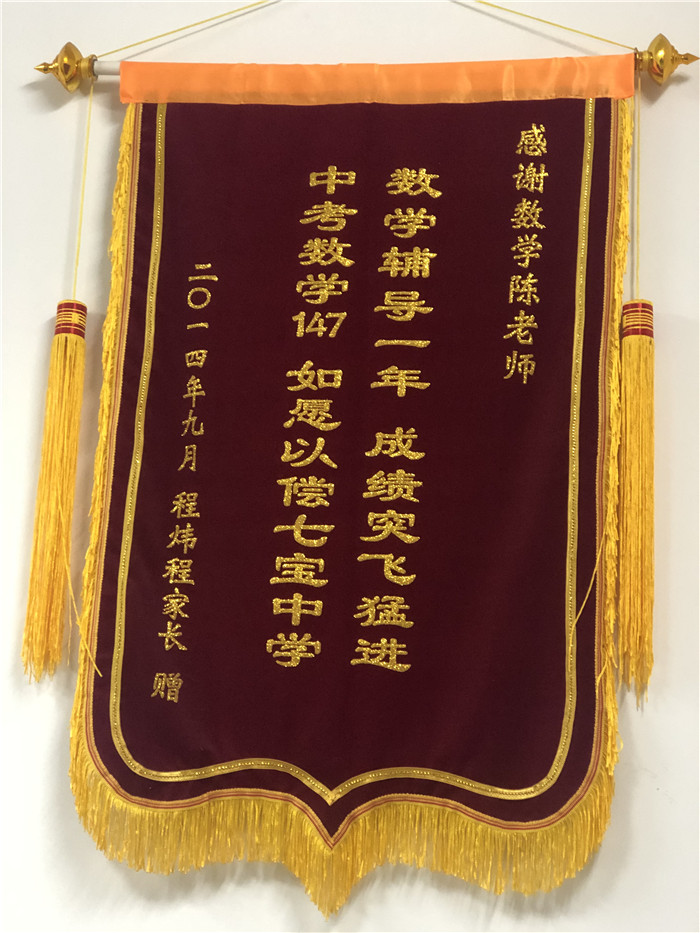 感谢数学陈老师
数学辅导一年 成绩突飞猛进
中考数学147 如愿以偿七宝中学
二〇一四年九月 程炜程家长 赠